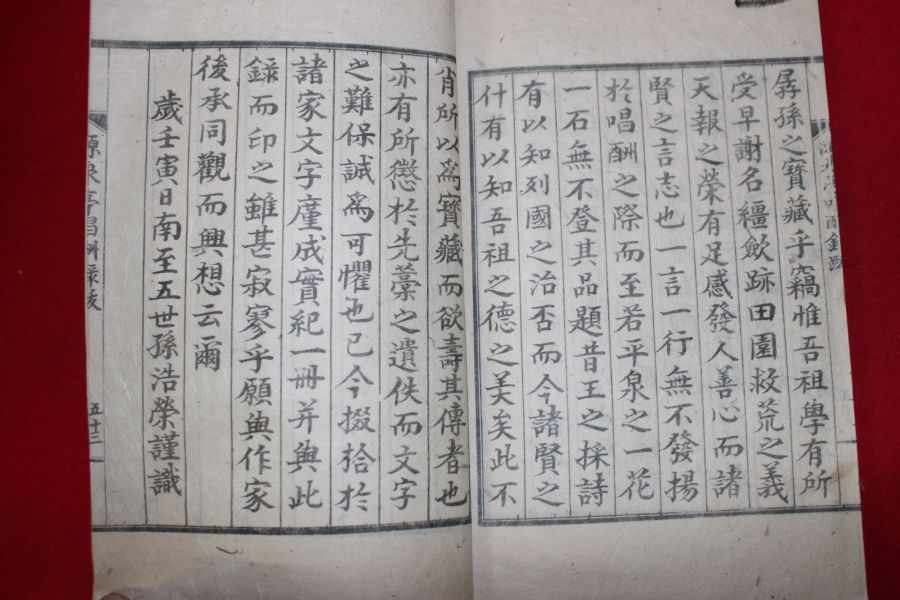 孱孫之寶藏乎竊惟吾祖學有所
受早謝名繮歛跡田園救荒之義
天報之榮有足感發人善心而諸
賢之言志也一言一行無不發揚
於唱酬之際而至若平泉之一花
一石無不登其品題昔王之採詩
有以知列國之治否而今諸賢之
什有以知吾祖之德之美矣此不
肖所以爲寶藏而欲壽其傳者也
亦有所懲於先藁之遺佚而文字
之難保誠爲可懼也已今掇拾於
諸家文字廑成實紀一冊并與此
録而印之雖甚寂寥乎願與作家
後承同觀而興想云爾
歲壬寅日南至五世孫浩榮謹識
源泉亭唱酬録跋
五十三